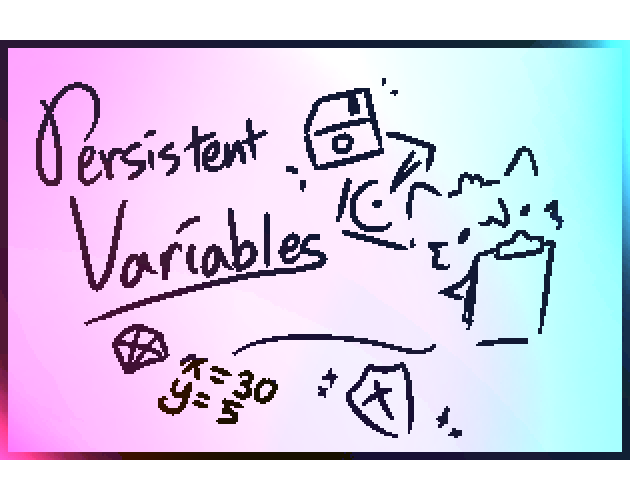 Persistent
Variables
x=30
y=5